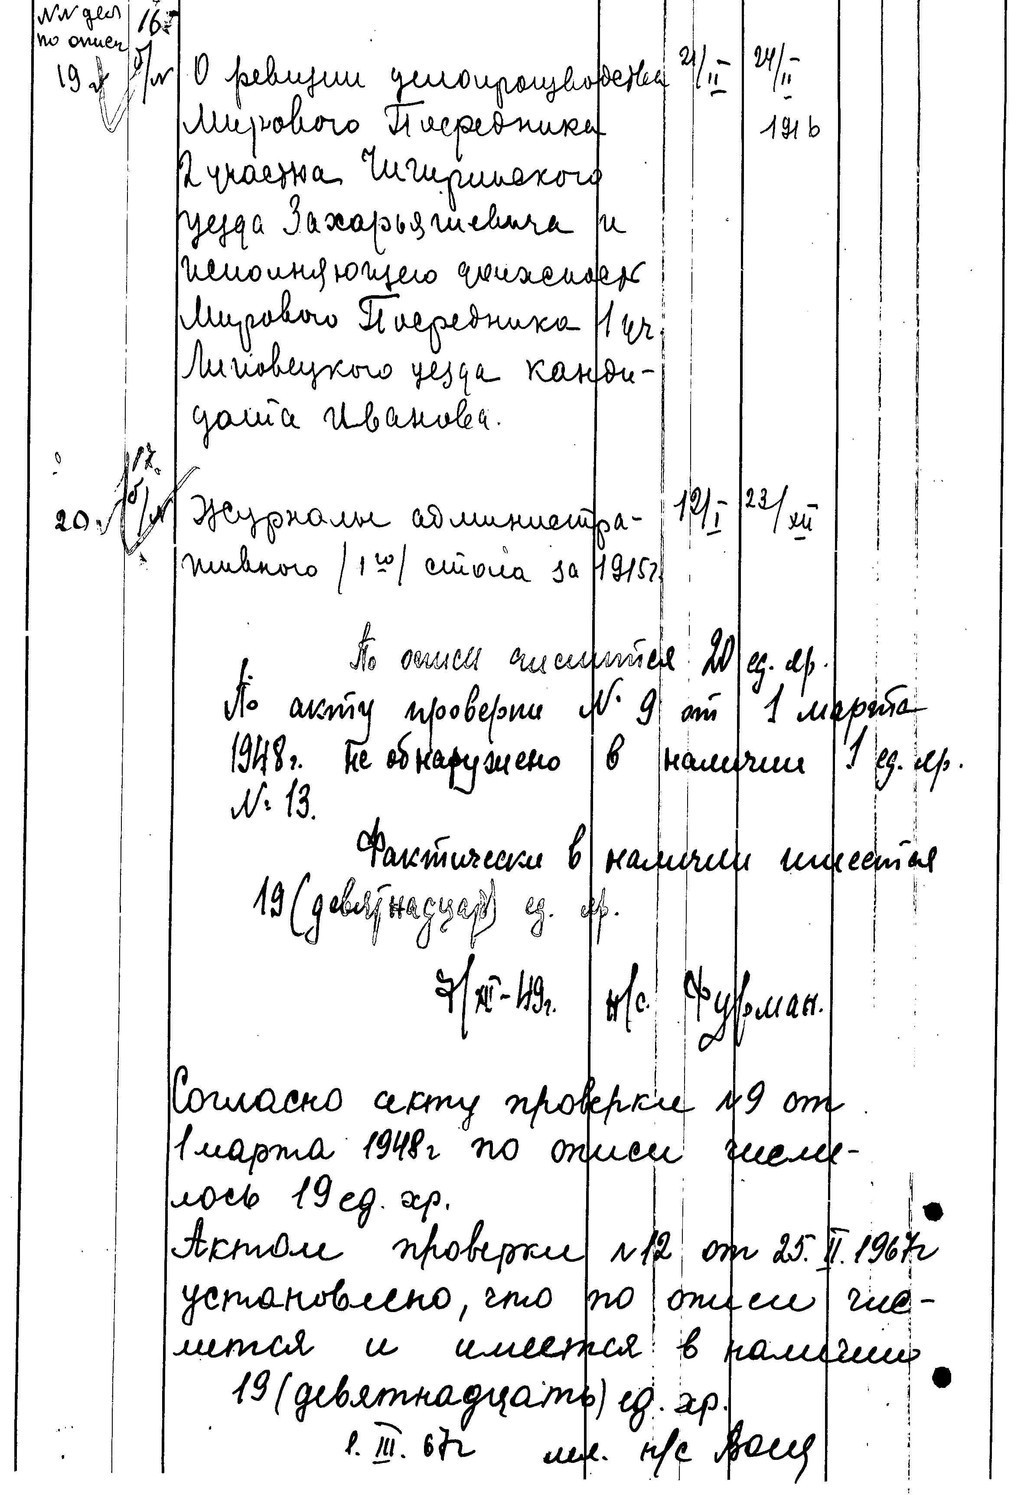 NN дел 16
по описи
19 б/N О ревизии делопроизводства 21/II 24/II
Мирового Посредника 1916
2 участка Чигиринского
уезда Захарьяшевича и
исполняющего должность
Мирового Посредника 1 уч.
Липовецкого уезда канди-
дата Иванова.
17.
20. б/N Журналы администра- 12/I 23/XII
тивного /1го/ стола за 1915г.
По описи числится 20 ед. хр.
По акту проверки N 9 от 1 марта
1948г. не обнаружено в наличии 1 ед. хр.
N: 13.
Фактически в наличии имеется
19 (девятнадцать) ед. хр.
7/XII-49г. н/с. Фурман.
Согласно акту проверки N9 от
1 марта 1948г по описи числи-
лось 19 ед. хр.
Актом проверки N12 от 25.II.1967г
установлено, что по описи чис-
лится и имеется в наличии
19 (девятнадцать) ед. хр.
1. III. 67г мл. н/с